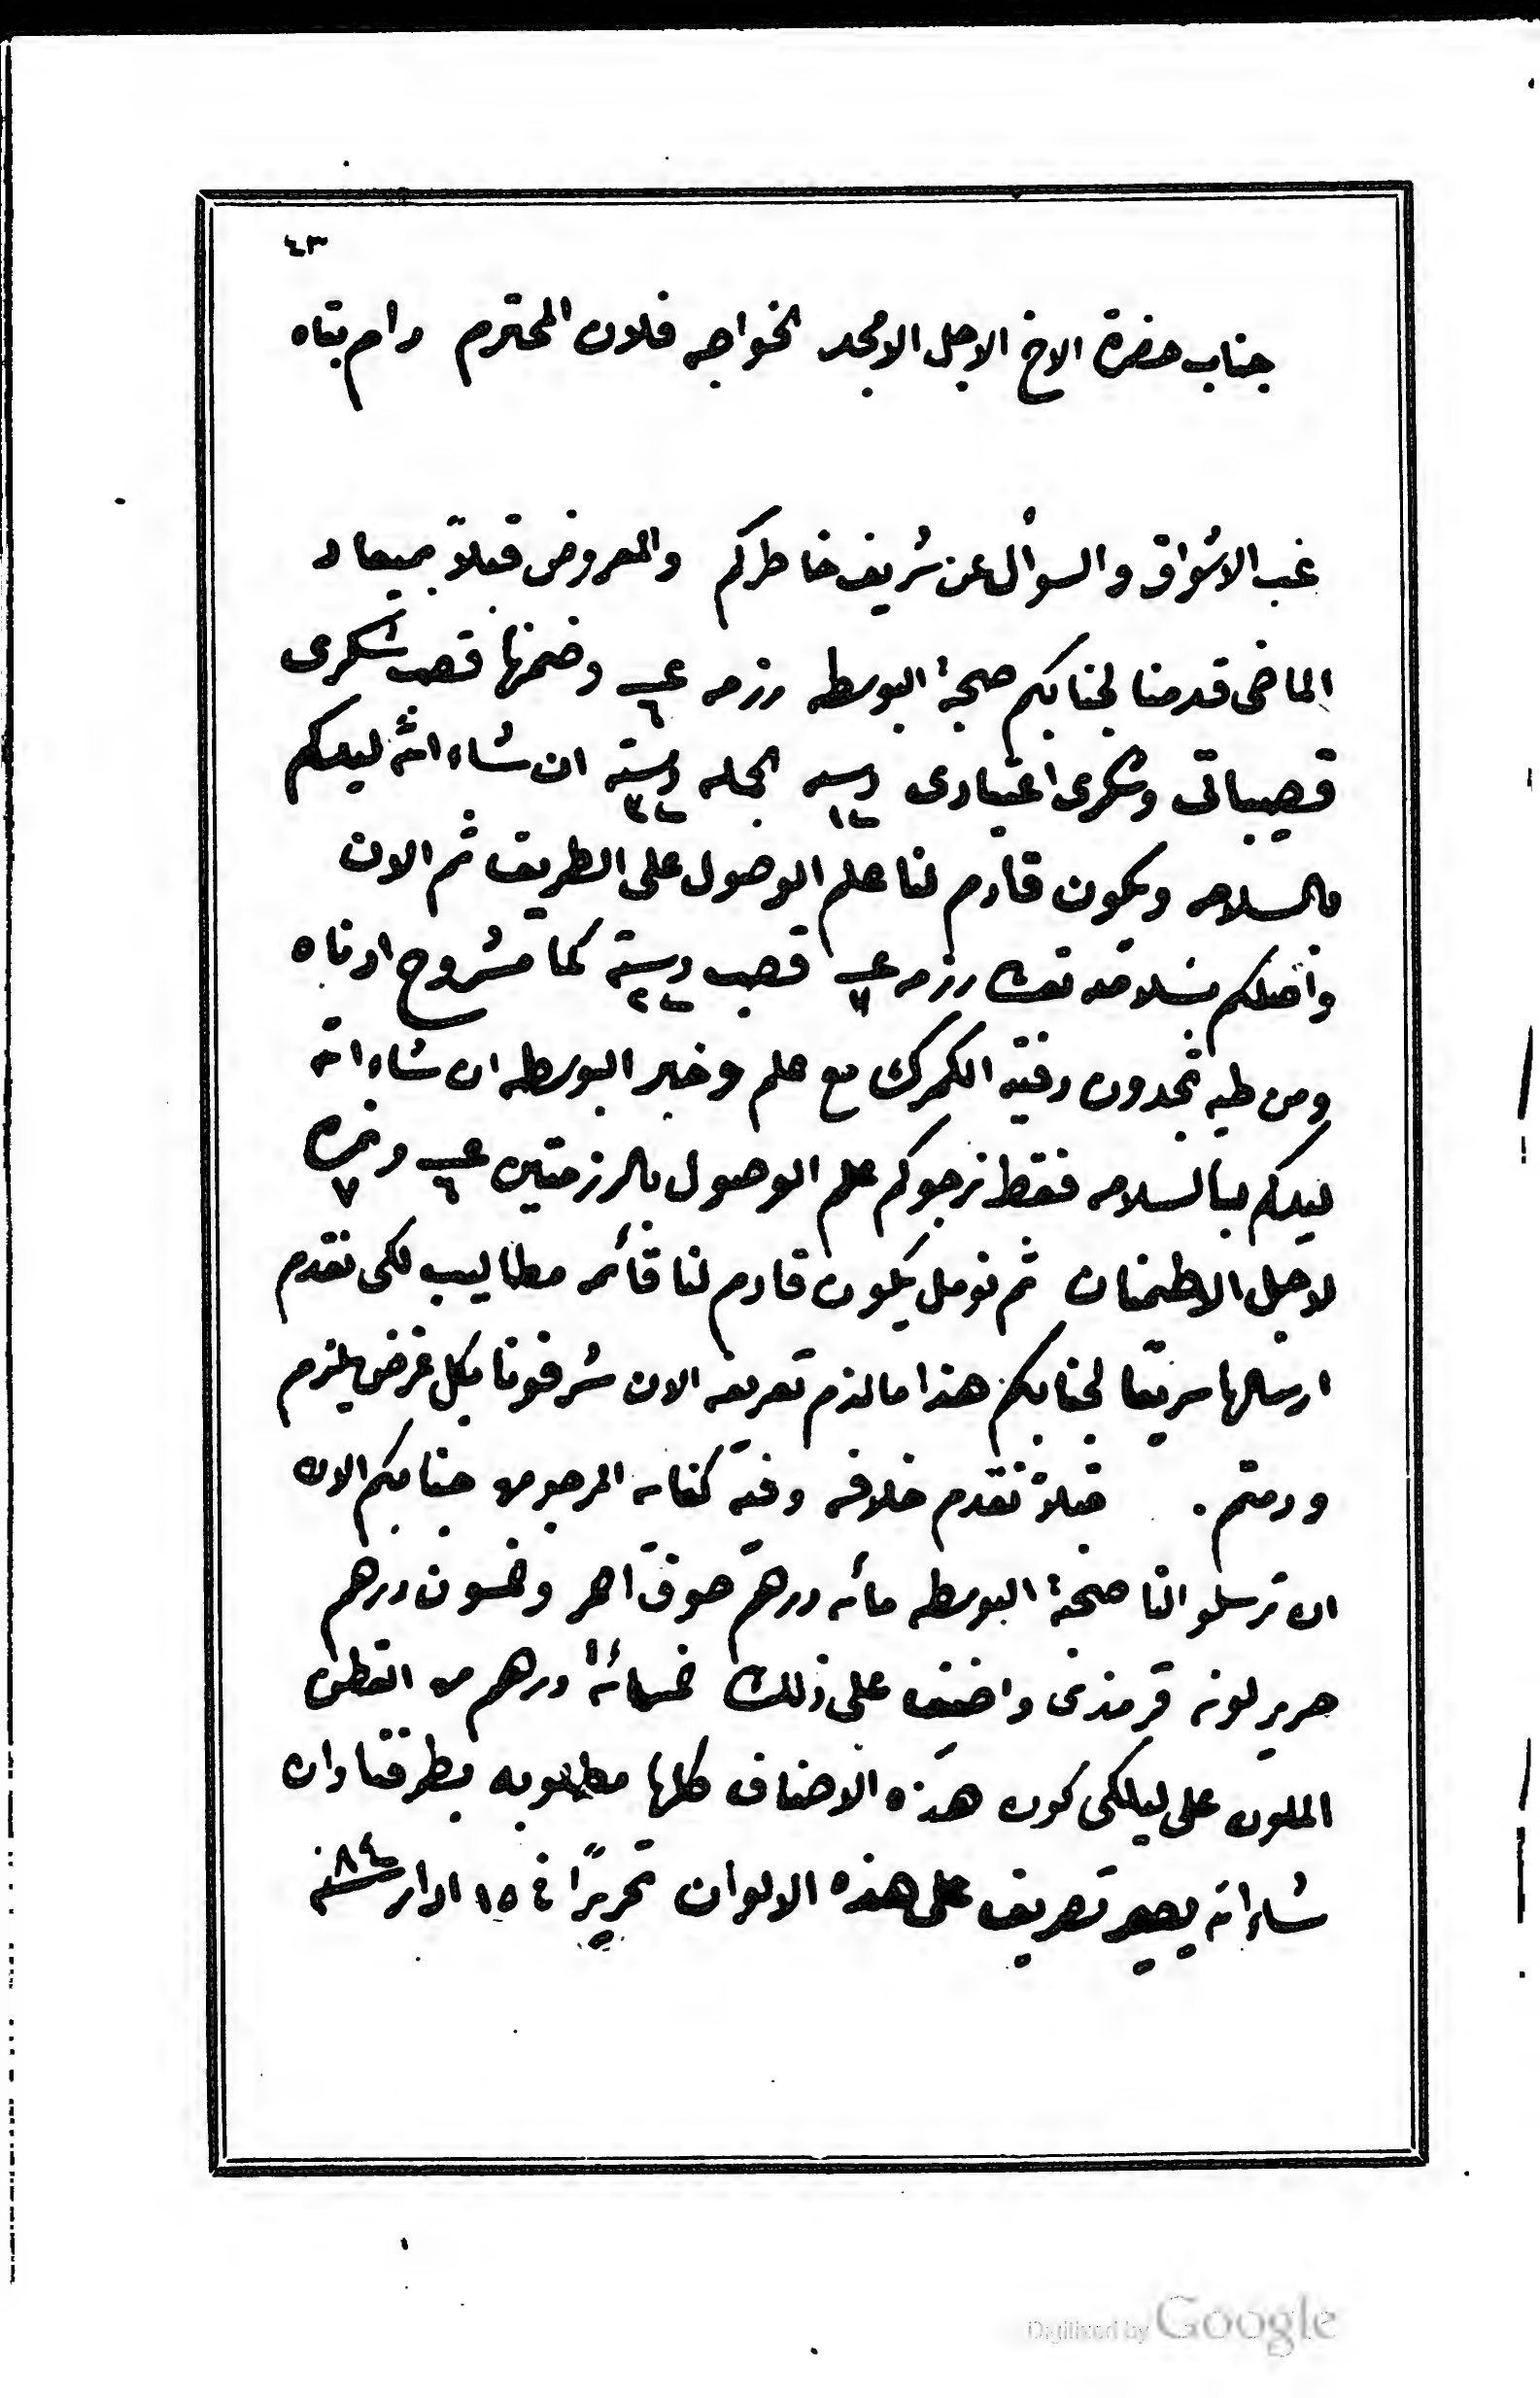 ٤٣
جناب حضرة الاخ الاجل الامجد الخواجه فلان المحترم دام بقاه
غب الاشواق والسوأل عن شريف خاطركم والمعروض قبلاً بميعاد
الماضى قدمنا لجنابكم صحبة البوسطه رزمه عـ ٦ وضمنها قصب شكرى
قصيباتى وشكرى اعتيادى دسته ١٤ الجمله دسته ٢٤ ان شاء الله ليدكم
بالسلامه ويكون قادم لنا علم الوصول على الطريق ثم الان
واصلكم رزمه عـ ٧ قصب دسته ٢٤ كما مشروح ادناه
ومن طيه تجدون رفتية الكمرك مع علم وخبر البوسطه ان شاء الله
ليدكم بالسلامه فقط نرجوكم علم الوصول بالرزمتين عـ ٦ ونمره ٧
لاجل الاطمنان ثم نومل يكون قادم لنا قائمه مطاليب لكى نقدم
ارسالها سريعًا لجنابكم هذا ما لزم تعريفه الان شرفونا بكل غرض يلزم
ودمتم . قبلاً تقدم خلافه وفيه كفايه المرجو من جنابكم الان
ان ترسلو النا صحبة البوسطه مائه درهم صوف احمر وخمسون درهم
حرير لونه قرمذى واضيف على ذلك خمسمائة درهم من القطن
الملون على ليلكى كون هذه الاصناف كلها مطلوبه بطرفنا وان
شاء الله يصير تصريف على هذه الالوان تحريرًا فى ١٥ ادار سنة ٨٤
Digitized by Google